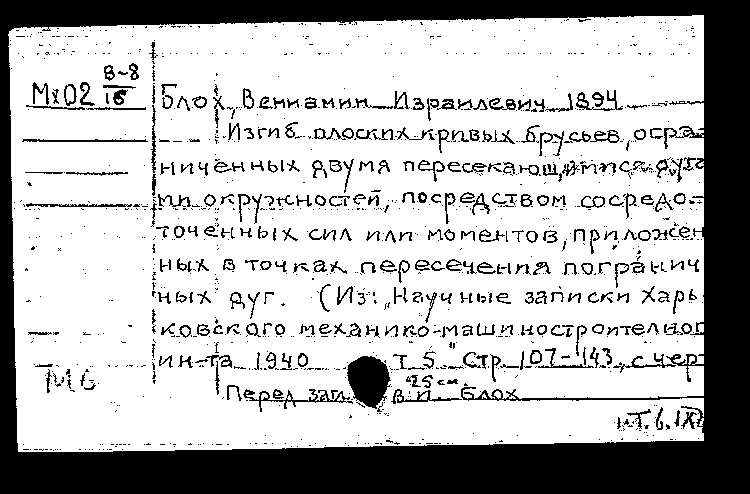 В-8
Мх02 16
Блох, Вениамин Израилевич 1894
Изгиб плоских кривых брусьев, огра
ниченных двумя пересекающимися дуга
ми окружностей, посредством сосредо-
точенных сил или моментов, приложен
ных в точках пересечения погранич
ных дуг. (Из: „Научные записки Харь
ковского механико-машиностроительног
ин-та 1940 т 5" Стр. 107-143, с черт
25 см
М6
Перед загл. В. И. Блох